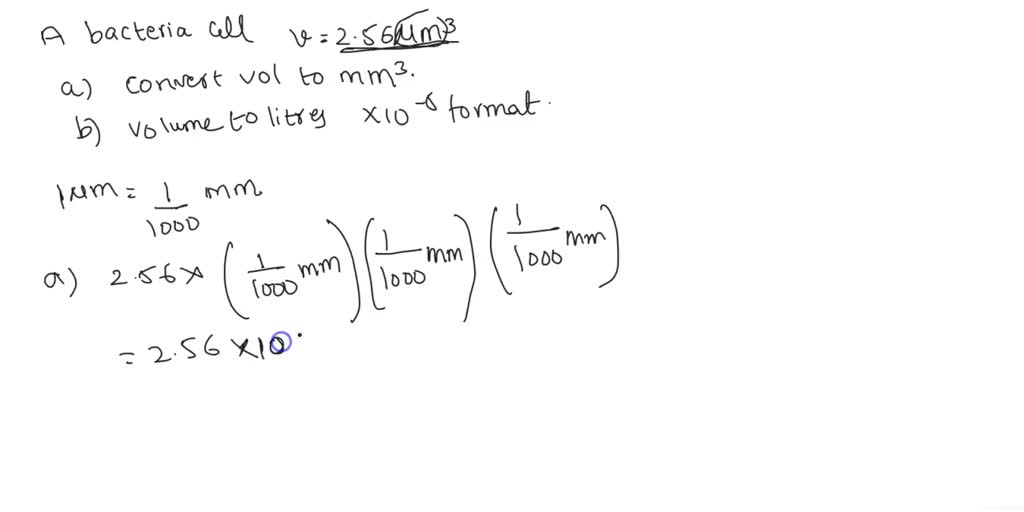 A bacteria cell v = 2.56 (μm)³
a) convert vol to mm³.
b) volume to litres ×10⁻⁶ format.
1μm = 1/1000 mm
a) 2.56 × (1/1000 mm) (1/1000 mm) (1/1000 mm)
= 2.56 ×10